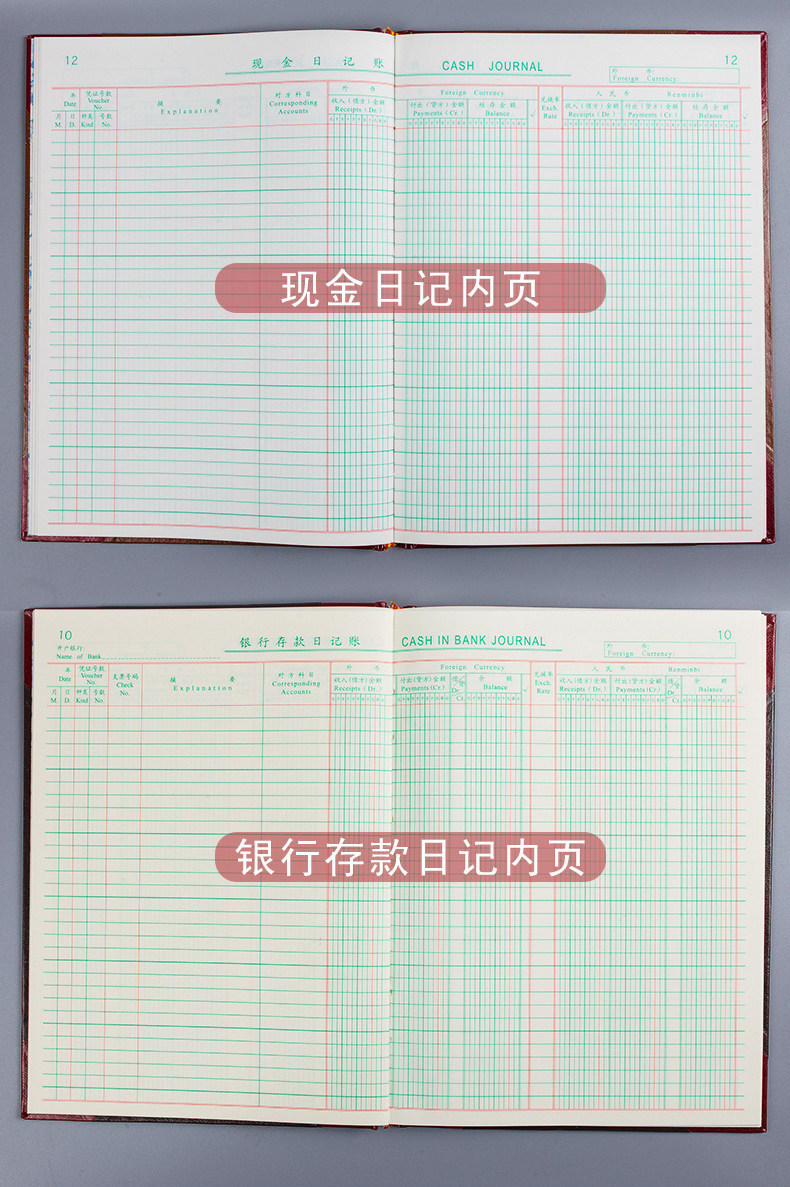 12
现金日记账 CASH JOURNAL
12
外 币:
Foreign Currency:
年
Date
凭证号数
Voucher
No.
摘 要
Explanation
对方科目
Corresponding
Accounts
外 币
Foreign Currency
收入(借方)金额
Receipts (Dr.)
付出(贷方)金额
Payments (Cr.)
结存金额
Balance
√
兑换率
Exch.
Rate
人 民 币 Renminbi
收入(借方)金额
Receipts (Dr.)
付出(贷方)金额
Payments (Cr.)
结存金额
Balance
√
月 日 种类 号数
M. D. Kind No.
现金日记内页
10
开户银行:
Name of Bank
银行存款日记账 CASH IN BANK JOURNAL
10
外 币:
Foreign Currency:
年
Date
凭证号数
Voucher
No.
支票号码
Check
No.
摘 要
Explanation
对方科目
Corresponding
Accounts
外 币
Foreign Currency
收入(借方)金额
Receipts (Dr.)
付出(贷方)金额
Payments (Cr.)
借
Dr.
Cr.
余 额
Balance
√
兑换率
Exch.
Rate
人 民 币 Renminbi
收入(借方)金额
Receipts (Dr.)
付出(贷方)金额
Payments (Cr.)
借
Dr.
Cr.
余 额
Balance
√
月 日 种类 号数
M. D. Kind No.
银行存款日记内页